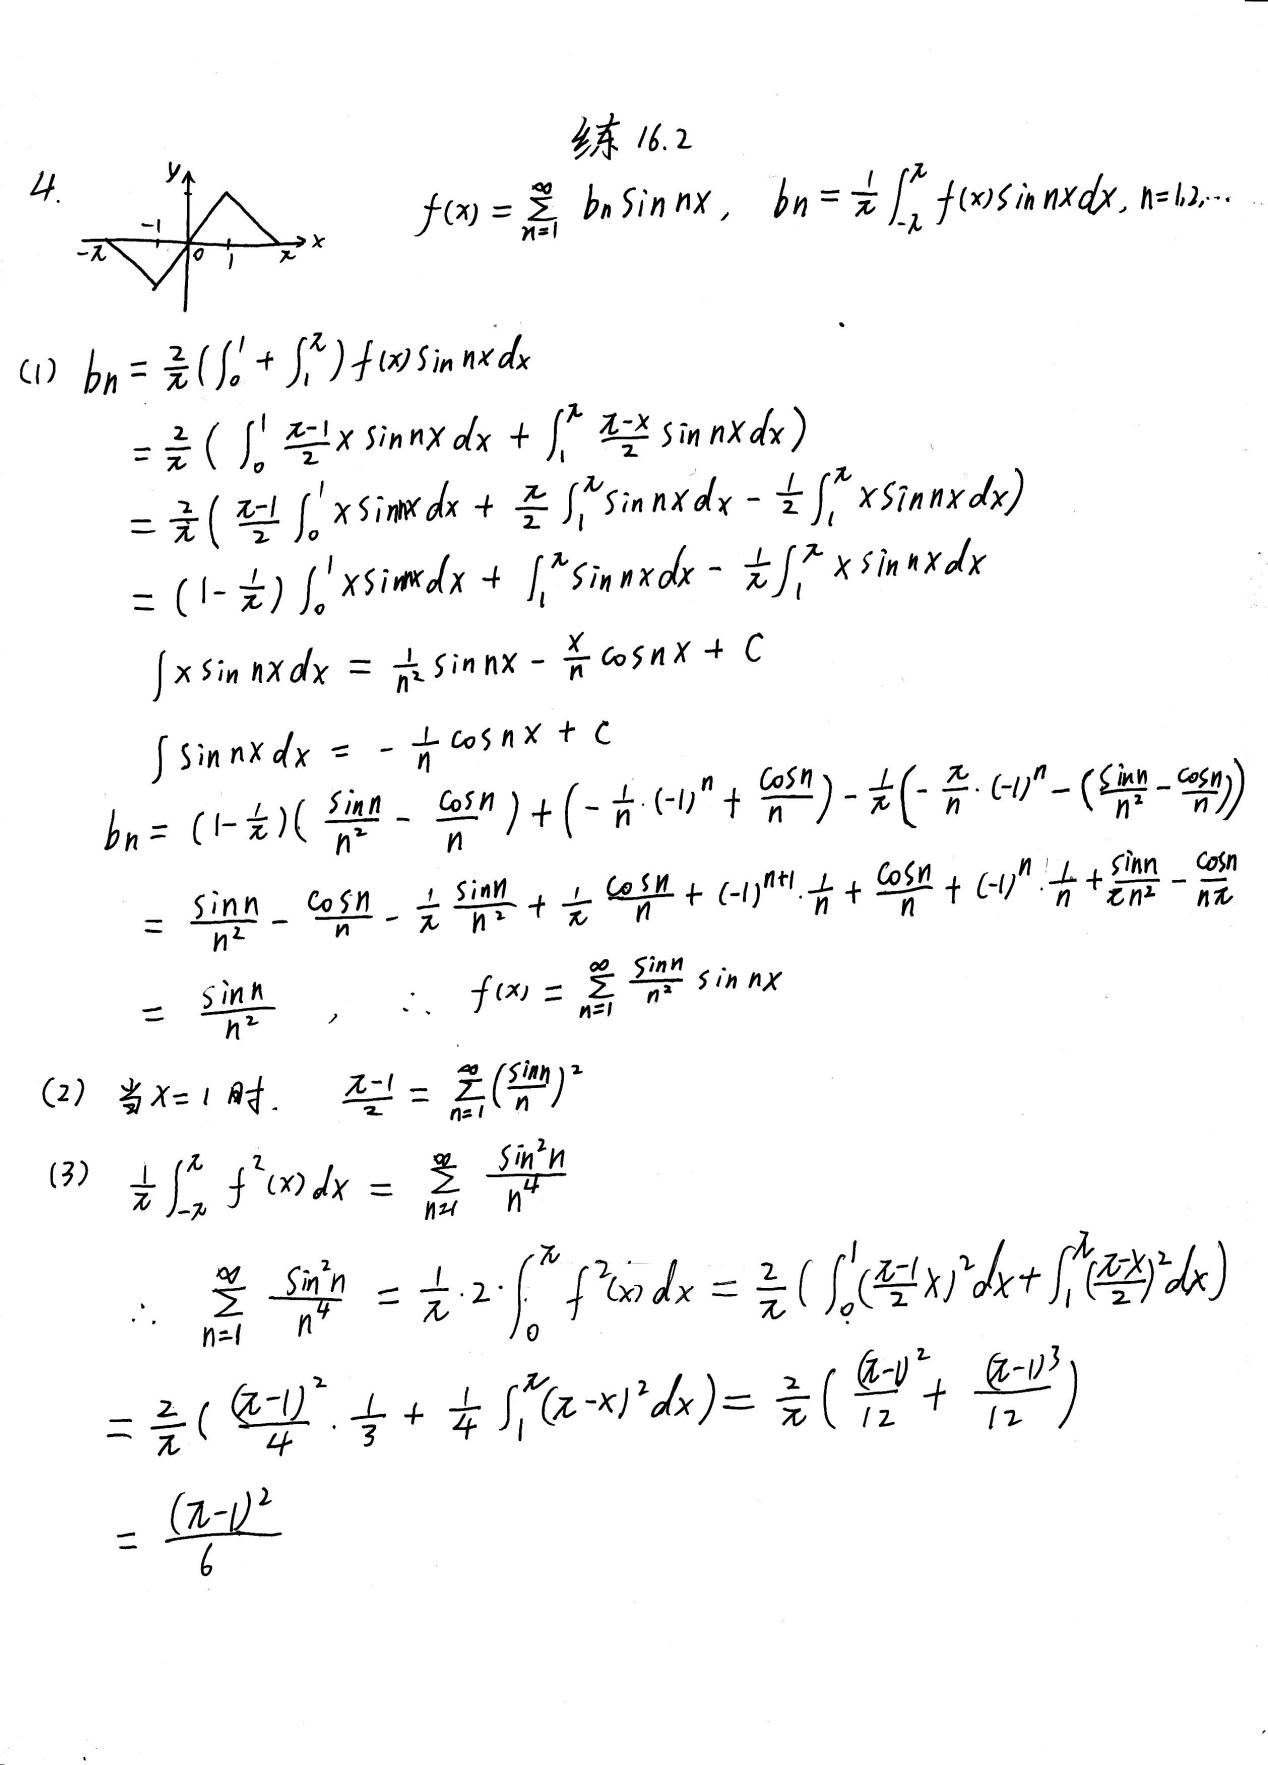 练 16.2
4. y -1 -π 0 1 π x f(x) = ∑_{n=1}^{∞} bn sin nx, bn = 1/π ∫_{-π}^{π} f(x) sin nx dx, n=1,2,…
(1) bn = 2/π (∫_0^1 + ∫_1^π) f(x) sin nx dx
= 2/π ( ∫_0^1 (π-1)/2 x sin nx dx + ∫_1^π (π-x)/2 sin nx dx)
= 2/π ( (π-1)/2 ∫_0^1 x sin nx dx + π/2 ∫_1^π sin nx dx - 1/2 ∫_1^π x sin nx dx)
= (1 - 1/π) ∫_0^1 x sin nx dx + ∫_1^π sin nx dx - 1/π ∫_1^π x sin nx dx
∫ x sin nx dx = 1/n² sin nx - x/n cos nx + C
∫ sin nx dx = - 1/n cos nx + C
bn = (1 - 1/π)( sin n/n² - cos n/n ) + (- 1/n · (-1)^n + cos n/n ) - 1/π (- π/n · (-1)^n - (sin n/n² - cos n/n))
= sin n/n² - cos n/n - 1/π sin n/n² + 1/π cos n/n + (-1)^{n+1} · 1/n + cos n/n + (-1)^n · 1/n + sin n/πn² - cos n/nπ
= sin n/n² , ∴ f(x) = ∑_{n=1}^{∞} sin n/n² sin nx
(2) 当 x = 1 时. (π-1)/2 = ∑_{n=1}^{∞} (sin n/n)²
(3) 1/π ∫_{-π}^{π} f²(x) dx = ∑_{n=1}^{∞} sin²n/n⁴
∴ ∑_{n=1}^{∞} sin²n/n⁴ = 1/π · 2 · ∫_0^π f²(x) dx = 2/π ( ∫_0^1 ((π-1)/2 x)² dx + ∫_1^π ((π-x)/2)² dx)
= 2/π ( (π-1)²/4 · 1/3 + 1/4 ∫_1^π (π-x)² dx) = 2/π ( (π-1)²/12 + (π-1)³/12 )
= (π-1)²/6